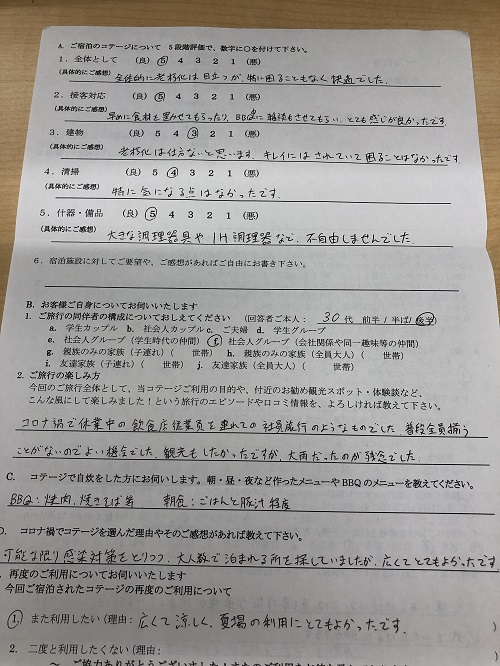 A. ご宿泊のコテージについて 5段階評価で、数字に○を付けて下さい。
1．全体として (良) 5 4 3 2 1 (悪)
(具体的にご感想) 全体的に老朽化は目立つが、特に困ることもなく快適でした。
2．接客対応 (良) 5 4 3 2 1 (悪)
(具体的にご感想) 早めに食材を置かせてもらったり、BBQに相談もさせてもらい、とても感じが良かったです。
3．建物 (良) 5 4 3 2 1 (悪)
(具体的にご感想) 老朽化は仕方ないと思います。キレイにはされていて困ることはなかったです。
4．清掃 (良) 5 4 3 2 1 (悪)
(具体的にご感想) 特に気になる点はなかったです。
5．什器・備品 (良) 5 4 3 2 1 (悪)
(具体的にご感想) 大きな調理器具やIH調理器など、不自由しませんでした。
6．宿泊施設に対してご要望や、ご感想があればご自由にお書き下さい。
B. お客様ご自身についてお伺いいたします
1. ご旅行の同伴者の構成についておしえてください (回答者ご本人： 30代 前半/半ば/後半)
a. 学生カップル b. 社会人カップル c. ご夫婦 d. 学生グループ
e. 社会人グループ（学生時代の仲間） f. 社会人グループ（会社関係や同一趣味等の仲間）
g. 親族のみの家族（子連れ）（ 世帯） h. 親族のみの家族（全員大人）（ 世帯）
i. 友達家族（子連れ）（ 世帯） j. 友達家族（全員大人）（ 世帯）
2. ご旅行の楽しみ方
今回のご旅行全体として、当コテージご利用の目的や、付近のお勧め観光スポット・体験談など、
こんな風にして楽しみました！という旅行のエピソードや口コミ情報を、よろしければ教えて下さい。
コロナ禍で休業中の飲食店従業員を連れての社員旅行のようなものでした。普段全員揃う
ことがないのでよい機会でした。観光もしたかったですが、大雨だったのが残念でした。
C. コテージで自炊をした方にお伺いします。朝・昼・夜など作ったメニューやBBQのメニューを教えてください。
BBQ：焼肉、焼きそば等 朝食：ごはんと豚汁程度
D. コロナ禍でコテージを選んだ理由やそのご感想があれば教えて下さい。
可能な限り感染対策をとりつつ、大人数で泊まれる所を探していましたが、広くてとてもよかったです
再度のご利用についてお伺いいたします
今回ご宿泊されたコテージの再度のご利用について
1. また利用したい（理由： 広くて涼しく、夏場の利用にとてもよかったです。 ）
2. 二度と利用したくない（理由： ）